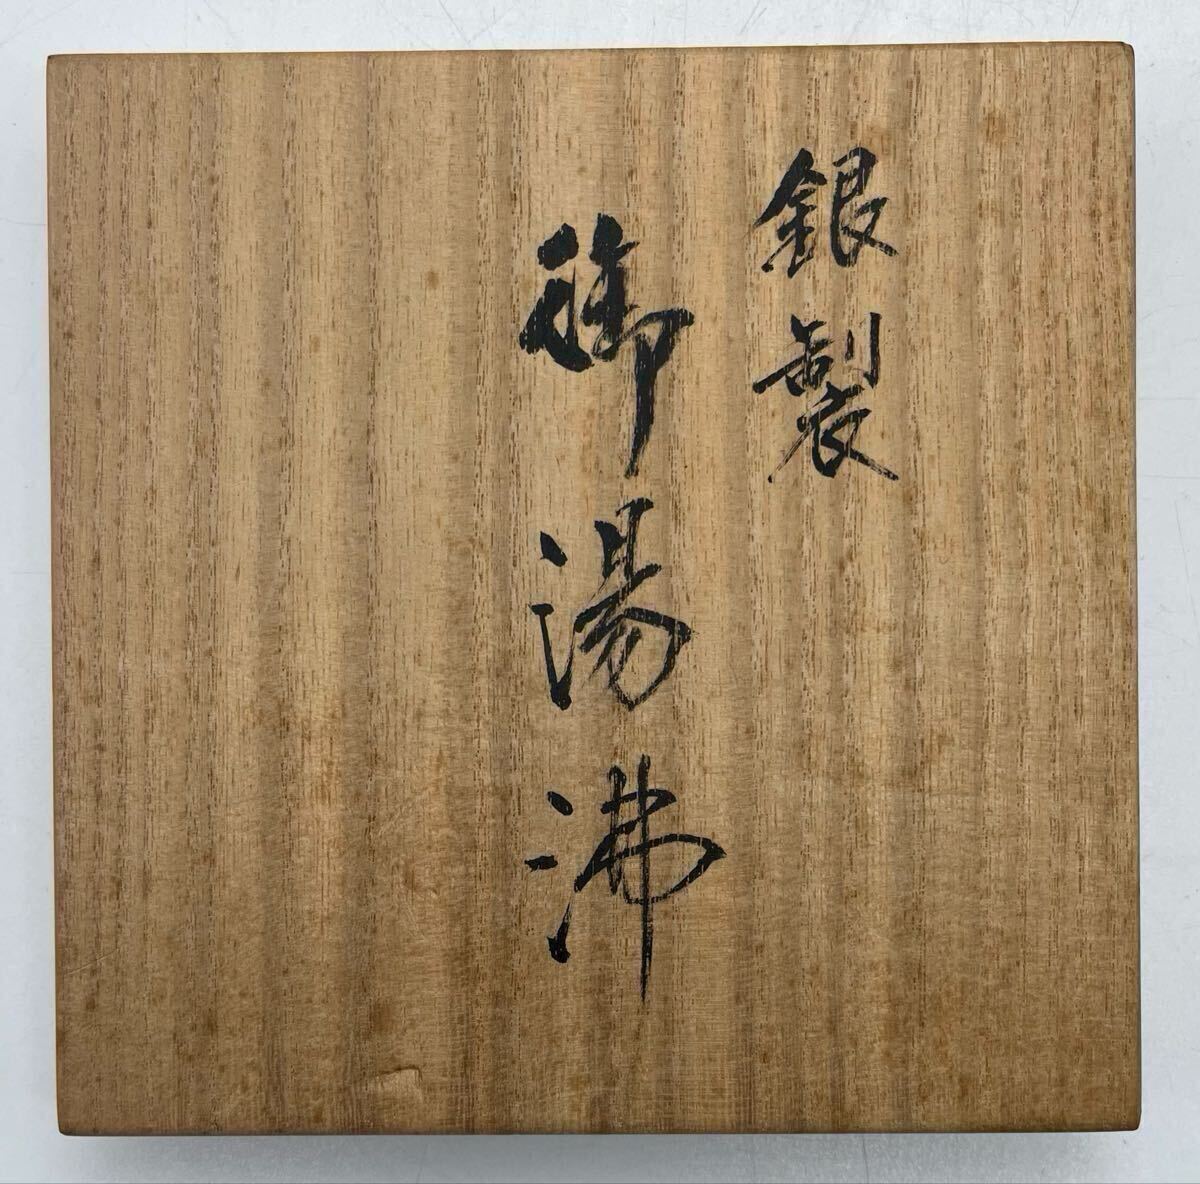 銀製
御湯沸